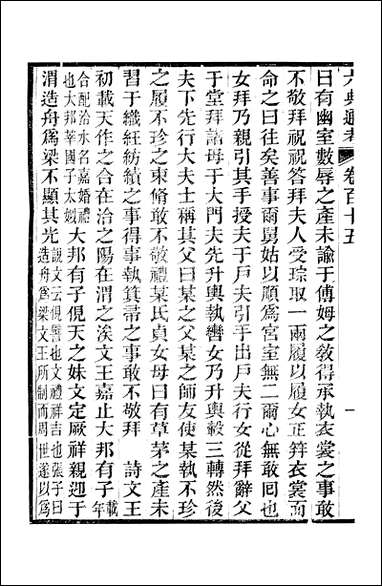 六典通考
卷百十五
一
曰有幽室數辱之產未諭于傅姆之敎得承執衣裳之事敢
不敬拜祝祝答拜夫人受琮取一兩履以履女正筓衣裳而
命之曰往矣善事爾舅姑以順爲宮室無二爾心無敢回也
女拜乃親引其手授夫于戶夫引手出戶夫行女從拜辭父
于堂拜諸母于大門夫先升輿執轡女乃升輿轂三轉然後
夫下先行大夫士稱其父曰某之父某之師友使某執不珍
之履不珍之束脩敢不敬禮某氏貞女母曰有草茅之產未
習于織紝紡績之事得奉執箕帚之事敢不敬拜　詩文王
初載天作之合在洽之陽在渭之涘文王嘉止大邦有子年載
合配洽水名嘉婚禮
也大邦莘國子太姒大邦有子俔天之妹文定厥祥親迎于
渭造舟爲梁不顯其光說文云俔譬也文禮祥吉也張子曰
造舟爲梁文王所制而周世遂以爲